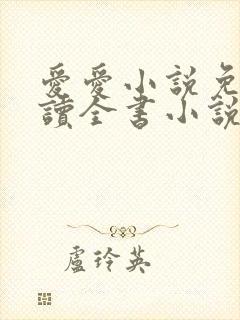 愛愛小說免
讀全書小說
盧玲英